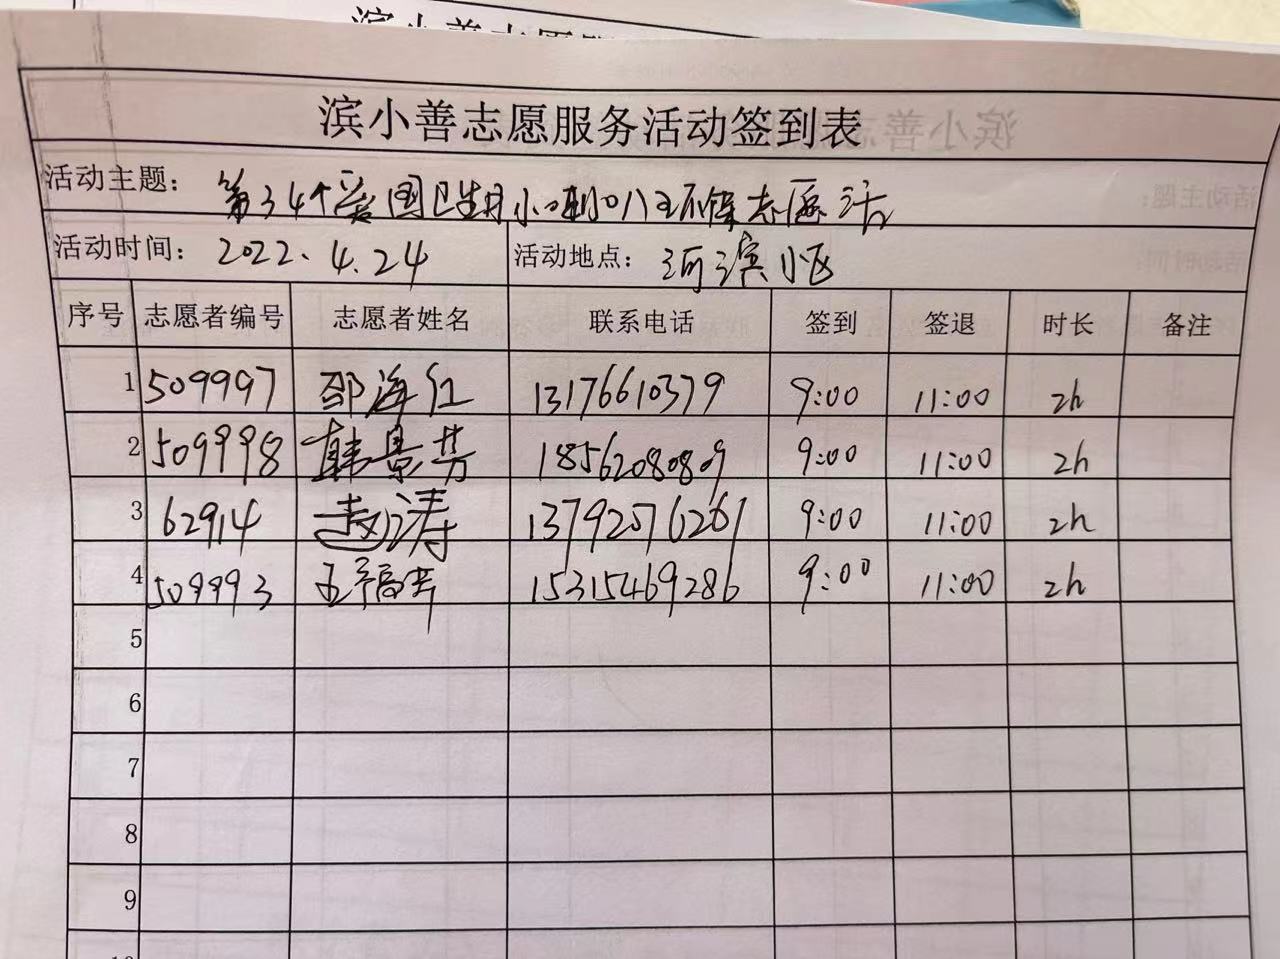 滨小善志愿服务活动签到表
活动主题： 第34个爱国卫生月小喇叭环保志愿活
活动时间： 2022.4.24 活动地点： 河滨小区
序号 志愿者编号 志愿者姓名 联系电话 签到 签退 时长 备注
1 509997 邵海红 13176610379 9:00 11:00 2h
2 509998 韩景芳 18562080809 9:00 11:00 2h
3 62914 赵涛 13792576261 9:00 11:00 2h
4 509993 15315469286 9:00 11:00 2h
5
6
7
8
9